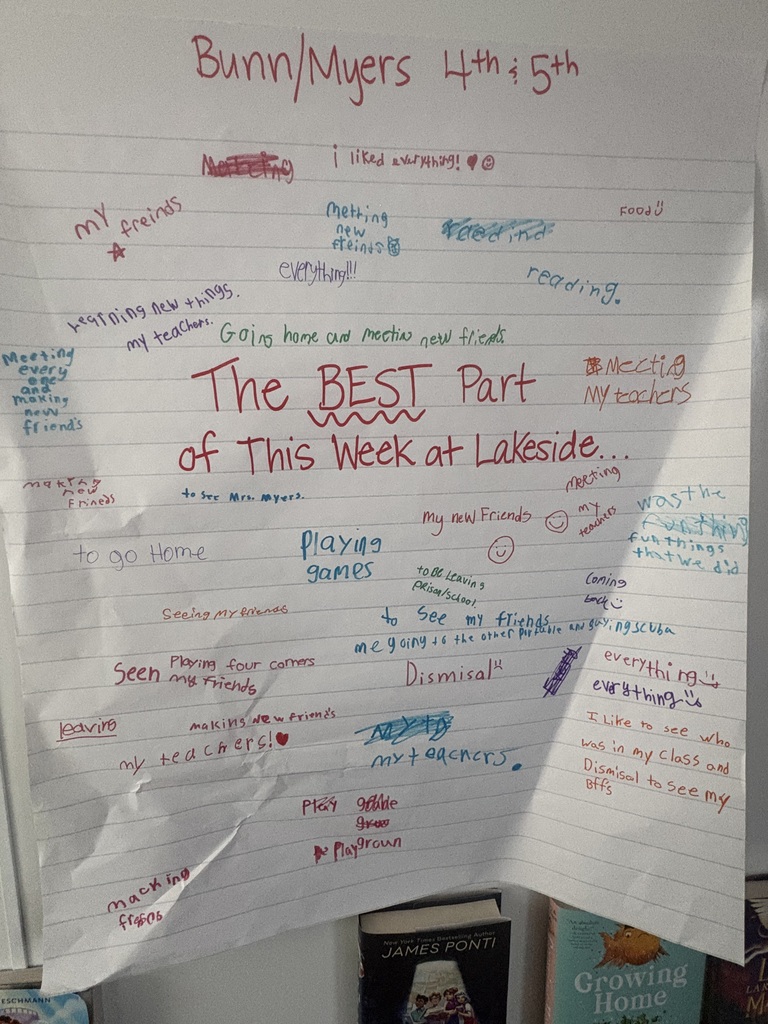 Bunn/Myers 4th & 5th
Meeting
i liked everything!
my freinds
metting
new
freinds
FOOD
everything!!!
reading.
Learning new things.
my teachers.
Going home and meetin new friends
Meeting
every
one
and
making
new
friend's
The BEST Part
of This Week at Lakeside...
Meeting
My teachers
making
new
Frineds
to see Mrs. Myers.
my new Friends
Meeting
my
teachers
was the
fun things
that we did
to go Home
Playing
games
to be leaving
prison/school
coming
back
Seeing my friends
to see my friends
me going to the other portable and saying scuba
Seen Playing four corners
my friends
Dismisal
everything
everything
leaving
making new friends
my teachers!
my teachers.
I Like to see who
was in my class and
Dismisal to see my
Bffs
Play
Playgroun
macking
New York Times Bestselling Author
JAMES PONTI
Growing
Home
ESCHMANN